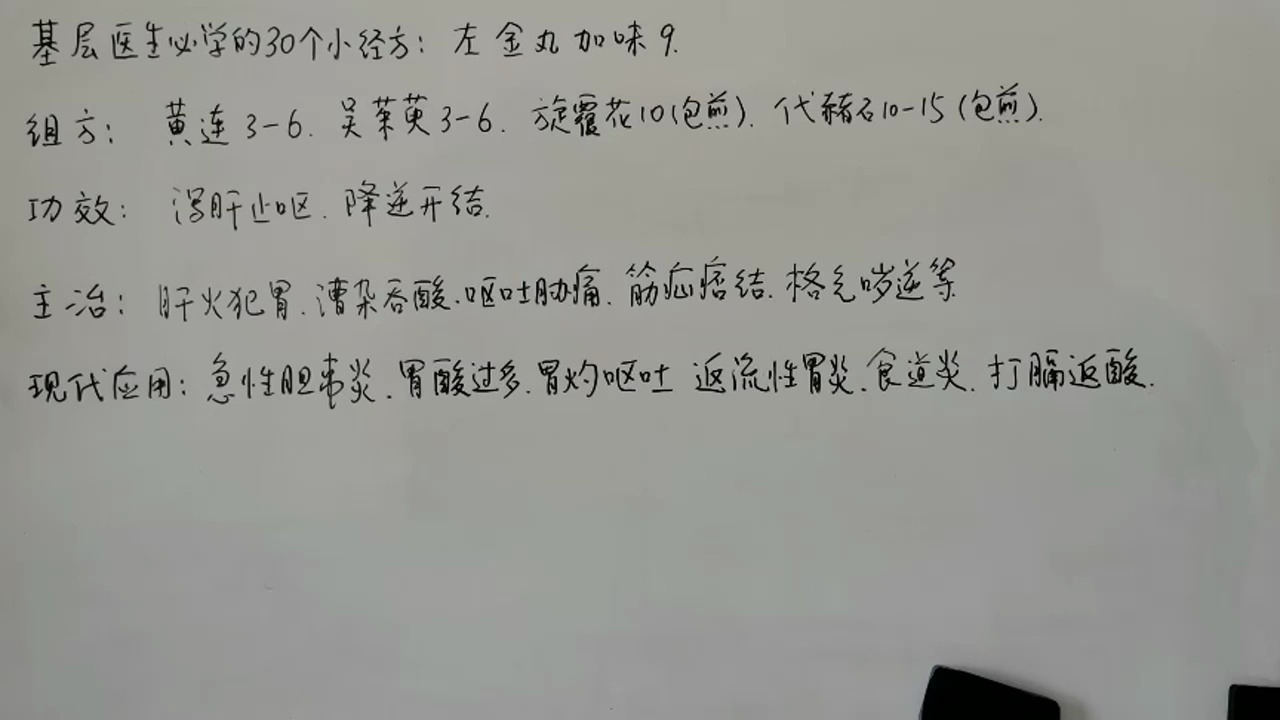 基层医生必学的30个小经方：左金丸加味9.
组方：黄连3-6. 吴茱萸3-6. 旋覆花10(包煎). 代赭石10-15(包煎).
功效：泻肝止呕. 降逆开结.
主治：肝火犯胃. 漕杂吞酸. 呕吐胁痛. 筋疝痞结. 格气哕逆等
现代应用：急性胆囊炎. 胃酸过多. 胃灼呕吐 返流性胃炎. 食道炎. 打膈返酸.